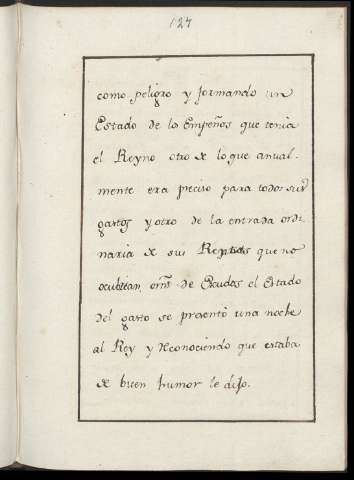 127
como peligro y formando un
Estado de los Empeños que tenia
el Reyno otro de lo que anual-
mente era preciso para todos sus
gastos y otro de la entrada ordi-
naria de sus Rentas que no
de Escudos el Estado
del gasto se presentò una noche
al Rey y reconociendo que estaba
de buen humor le dijo.